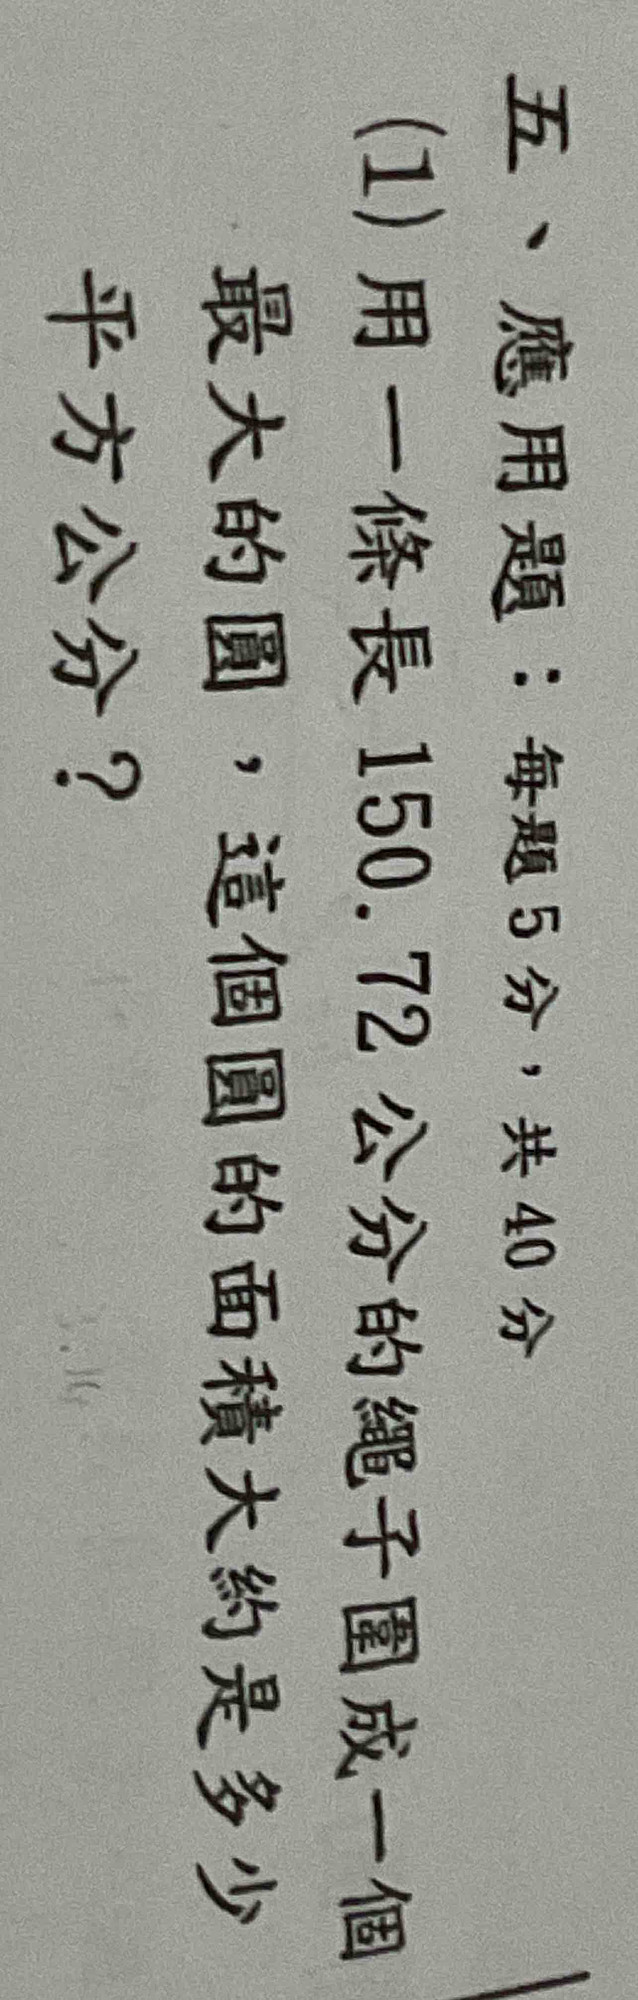 五、應用題：每題5分，共40分
(1)用一條長150.72公分的繩子圍成一個
最大的圓，這個圓的面積大約是多少
平方公分？